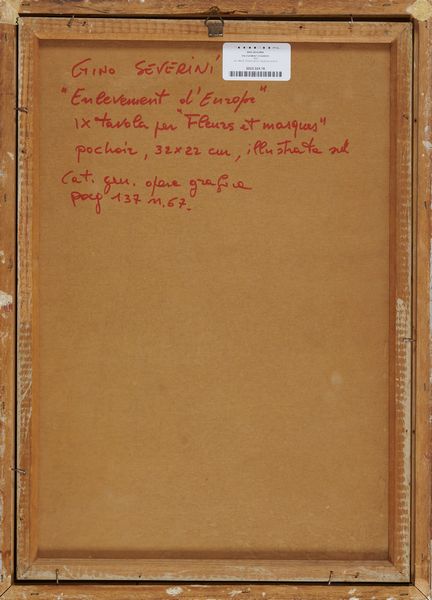 GINO SEVERINI
"Enlevement d'Europe"
IX tavola per "Fleurs et masques"
pochoir, 32x22 cm, illustrata sul
Cat. gen. opera grafica
pag 137 n. 67.